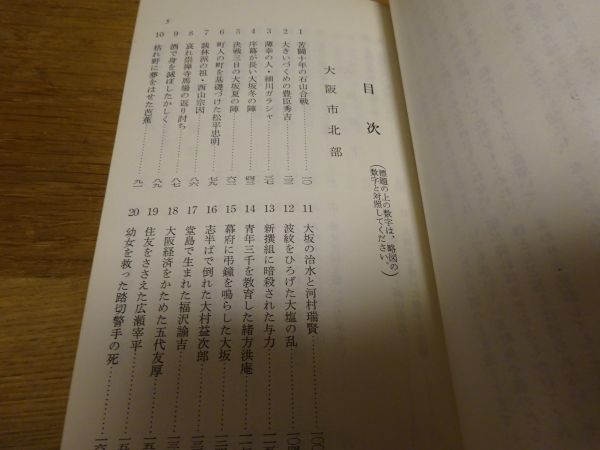 目次
(標題の上の数字は、略図の
数字と対照してください。)
大阪市北部
1 苦闘十年の石山合戦 一〇
2 大きいづくめの豊臣秀吉 二三
3 薄幸の人・細川ガラシャ 三七
4 序幕が長い大坂冬の陣 四三
5 決戦三日の大坂夏の陣 六三
6 町人の町を基礎づけた松平忠明 七九
7 談林派の祖・西山宗因 八六
8 哀れ崇禅寺馬場の返り討ち 八七
9 酒で身を滅ぼしたかしく 八九
10 枯れ野に夢をはせた芭蕉 九一
11 大坂の治水と河村瑞賢 一〇〇
12 波紋をひろげた大塩の乱 一〇四
13 新撰組に暗殺された与力
14 青年三千を教育した緒方洪庵
15 幕府に弔鐘を鳴らした大坂
16 志半ばで倒れた大村益次郎
17 堂島で生まれた福沢諭吉
18 大阪経済をかためた五代友厚
19 住友をささえた広瀬宰平
20 幼女を救った踏切警手の死
5